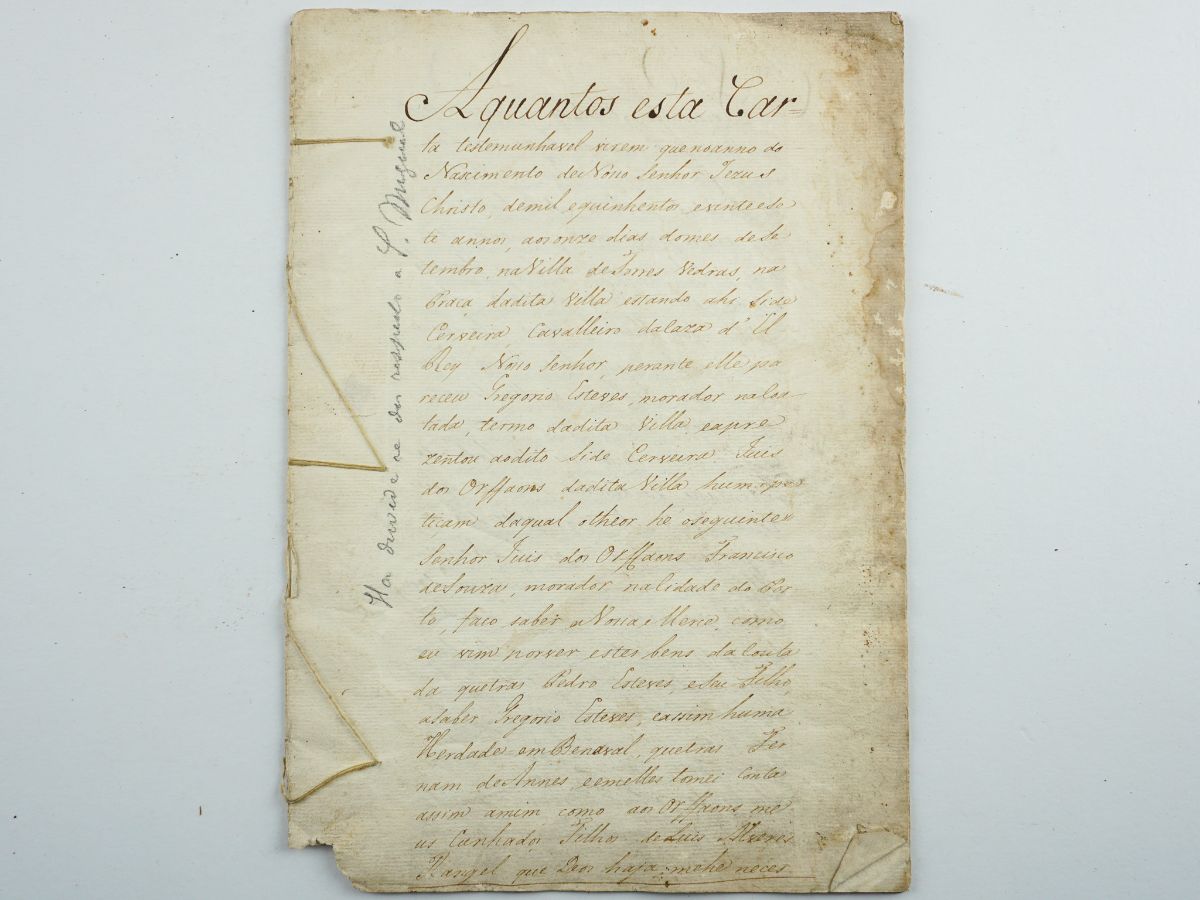 Aquantos esta Car=
ta testemunhavol virem que no anno do
Nascimento de Nosso Senhor Jezus
Christo, demil equinhentos evinteese
te annos, aos onze dias domes de Se
tembro, na Villa de Torres Vedras, na
Praça dadita Villa estando ahi Side
Cerveira, Cavalleiro daCaza d' El
Rey Nosso Senhor, perante elle pa
receu Gregorio Esteves, morador naCou
tada, termo dadita Villa, eapre
zentou aodito Side Cerveira Juis
dos Orffaons dadita Villa huma pe
tiçam daqual otheor he oseguinte
Senhor Juis dos Orffaons Francisco
deSouza, morador naCidade do Por
to, faço saber a Vossa Merce, como
eu vim porver estes bens daCouta
da quetras Pedro Esteves, eSeu Filho,
aSaber Gregorio Esteves, eassim huma
Herdade em Benaval, quetras Fer
nam deAnnes, eemelles tomei Conta
assim amim como aos Orffaons me
us Cunhados Filhos deLuis Alveres
Rangel que Deos haja, mehe neces
que diz respeito a S. Miguel